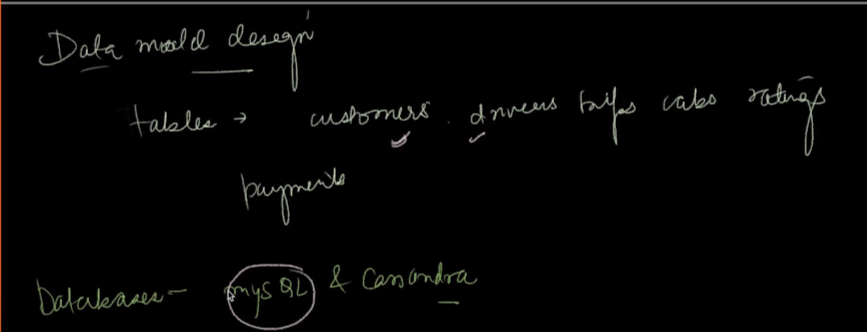 Data model design
tables → customers. drivers trips cabs ratings
payments
Databases - mySQL & Cassandra